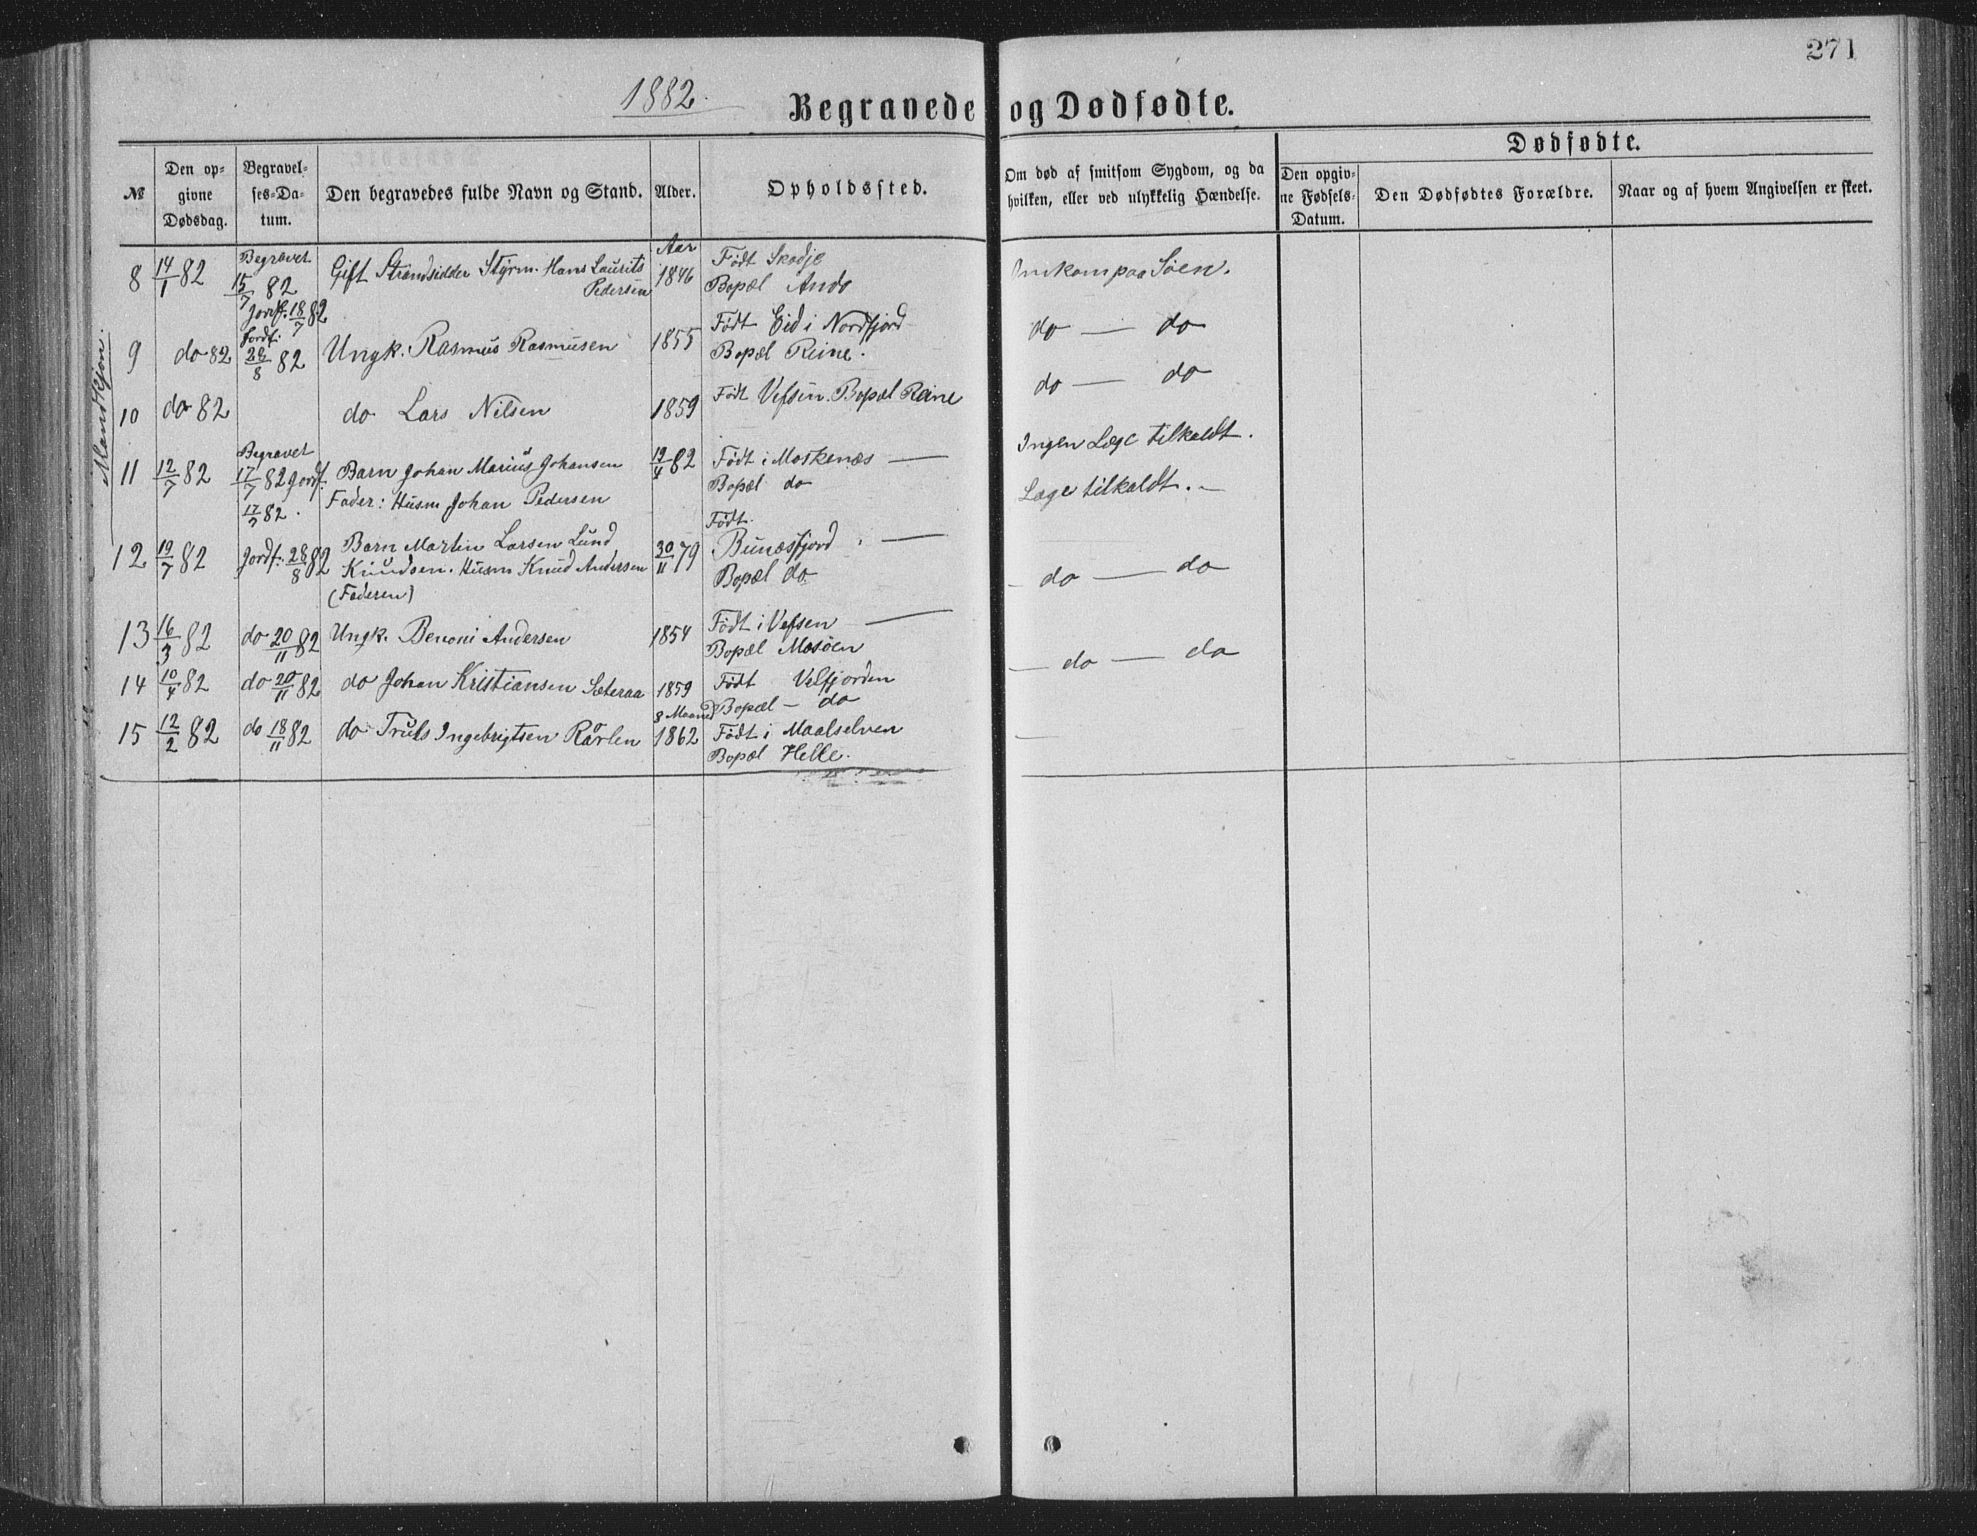 271
1882.
Begravede og Dødfødte.
Mandkjøn.
№
Den opgivne Dødsdag.
Begravelses-Datum.
Den begravedes fulde Navn og Stand.
Alder.
Opholdssted.
Om død af smitsom Sygdom, og da hvilken, eller ved ulykkelig Hændelse.
Dødfødte.
Den opgivne Fødsels-Datum.
Den Dødfødtes Forældre.
Naar og af hvem Angivelsen er skeet.
8 14/1 82 Begravet 15/7 82 Jordf. 18/7 82 Gift Strandsidder Styrm. Hans Laurits Pedersen Aar 1846 Født Skodje Bopæl Andø Omkom paa Søen.
9 do 82 Jordf. 28/8 82 Ungk. Rasmus Rasmusen 1855 Født Eid i Nordfjord Bopæl Reine. do — do
10 do 82 do Lars Nilsen 1859 Født Vefsen. Bopæl Reine do — do
11 12/7 82 Begravet 17/7 82 Jordf. 17/7 82. Barn Johan Marius Johansen Fader: Husm Johan Pedersen 19/4 82 Født i Moskenæs — Bopæl do Ingen Læge tilkaldt.
12 19/7 82 Jordf. 28/8 82 Barn Martin Larsen Lund Knudsen. Husm Knud Andersen (Faderen) 30/11 79 Født. Bunæsfjord. — Bopæl do Læge tilkaldt. —
13 16/3 82 do 20/11 82 Ungk. Benoni Andersen 1854 Født i Vefsen — Bopæl Mosøen — do — do
14 10/4 82 do 20/11 82 do Johan Kristiansen Sæteraa 1859 Født Velfjorden Bopæl — do — do — do
15 12/2 82 do 18/11 82 do Truls Ingebrigtsen 8 Maaned 1862 Født i Maalselven Bopæl Helle. —